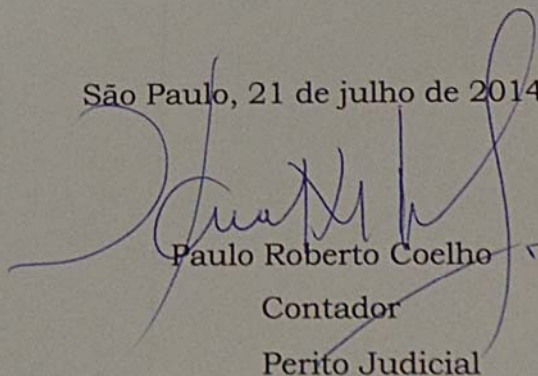 São Paulo, 21 de julho de 2014
Paulo Roberto Coelho
Contador
Perito Judicial